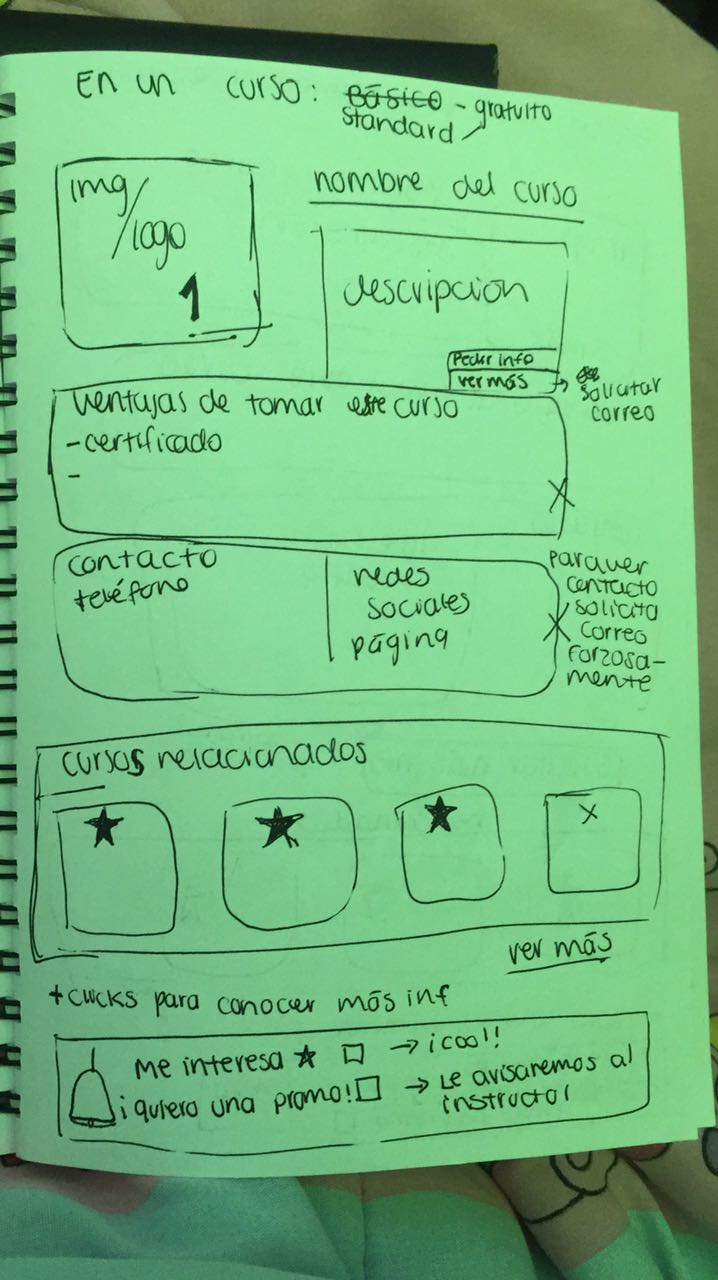 En un curso: Básico - gratuito
Standard
img/logo
1
nombre del curso
descripción
Pedir info
ver más → solicitar
correo
ventajas de tomar este curso
- certificado
-
X
contacto
teléfono
redes
sociales
página
X
para ver
contacto
solicita
correo
forzosa-
mente
cursos relacionados
★ ★ ★ X
ver más
+ clicks para conocer más inf
Me interesa ★ □ → ¡cool!
¡quiero una promo! □ → Le avisaremos al
instructor